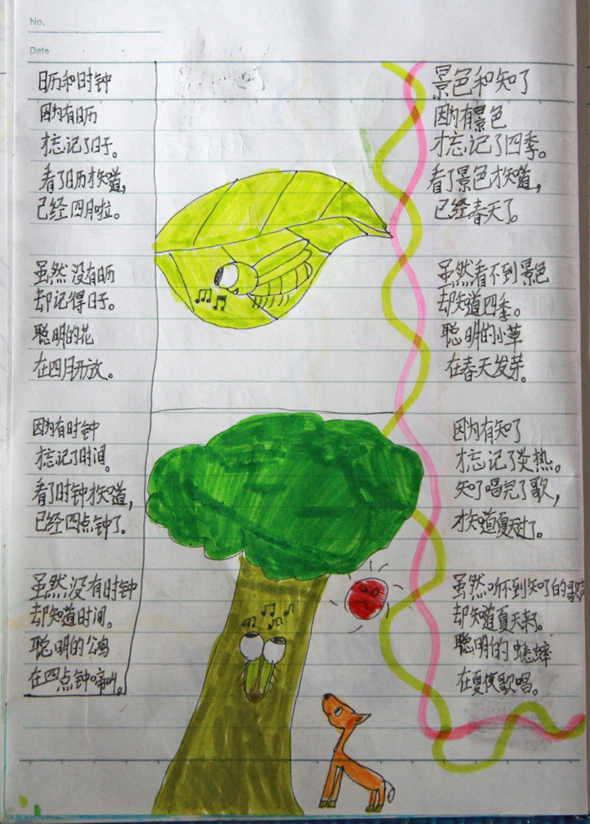 No.
Date
日历和时钟
因为有日历
才忘记了日子。
看了日历才知道，
已经四月啦。
虽然没有日历
却记得日子。
聪明的花
在四月开放。
因为有时钟
才忘记了时间。
看了时钟才知道，
已经四点钟了。
虽然没有时钟
却知道时间。
聪明的公鸡
在四点钟啼叫。
景色和知了
因为有景色
才忘记了四季。
看了景色才知道，
已经春天了。
虽然看不到景色
却知道四季。
聪明的小草
在春天发芽。
因为有知了
才忘记了炎热。
知了唱完了歌，
才知道夏天过了。
虽然听不到知了的歌声
却知道夏天来了。
聪明的蟋蟀
在夏夜歌唱。